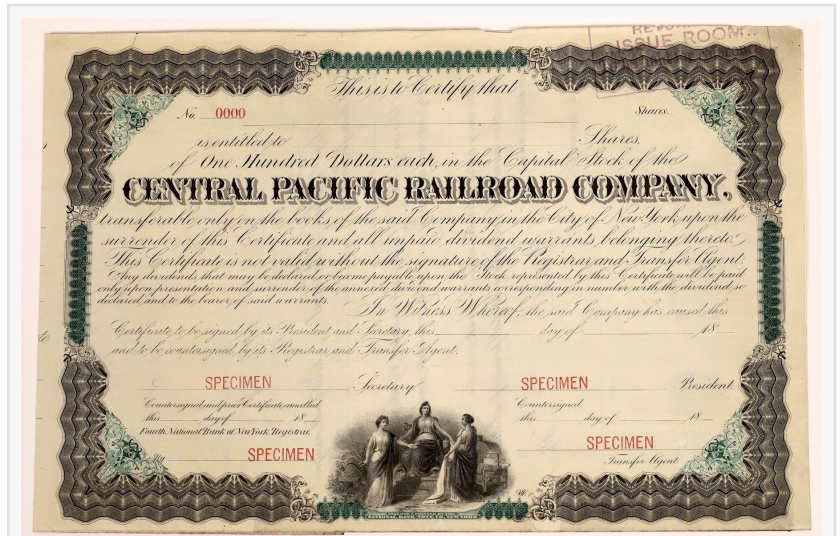 ISSUE ROOM.
This is to Certify that
No. 0000 Shares.
is entitled to Shares,
of One Hundred Dollars each, in the Capital Stock of the
CENTRAL PACIFIC RAILROAD COMPANY,
transferable only on the books of the said Company in the City of New York, upon the
surrender of this Certificate and all unpaid dividend warrants belonging thereto.
This Certificate is not valid without the signature of the Registrar and Transfer Agent.
Any dividends that may be declared or become payable upon the Stock represented by this Certificate will be paid
only upon presentation and surrender of the annexed dividend warrants corresponding in number with the dividend so
declared and to the bearer of said warrants.
In Witness Whereof, the said Company has caused this
Certificate to be signed by its President and Secretary, this day of 18
and to be countersigned by its Registrar and Transfer Agent.
SPECIMEN Secretary. SPECIMEN President.
Countersigned and prior Certificate cancelled
this day of 18
Fourth National Bank of New York, Registrar,
SPECIMEN
Countersigned
this day of 18
SPECIMEN
Transfer Agent
NATIONAL BANK NOTE CO. NEW YORK